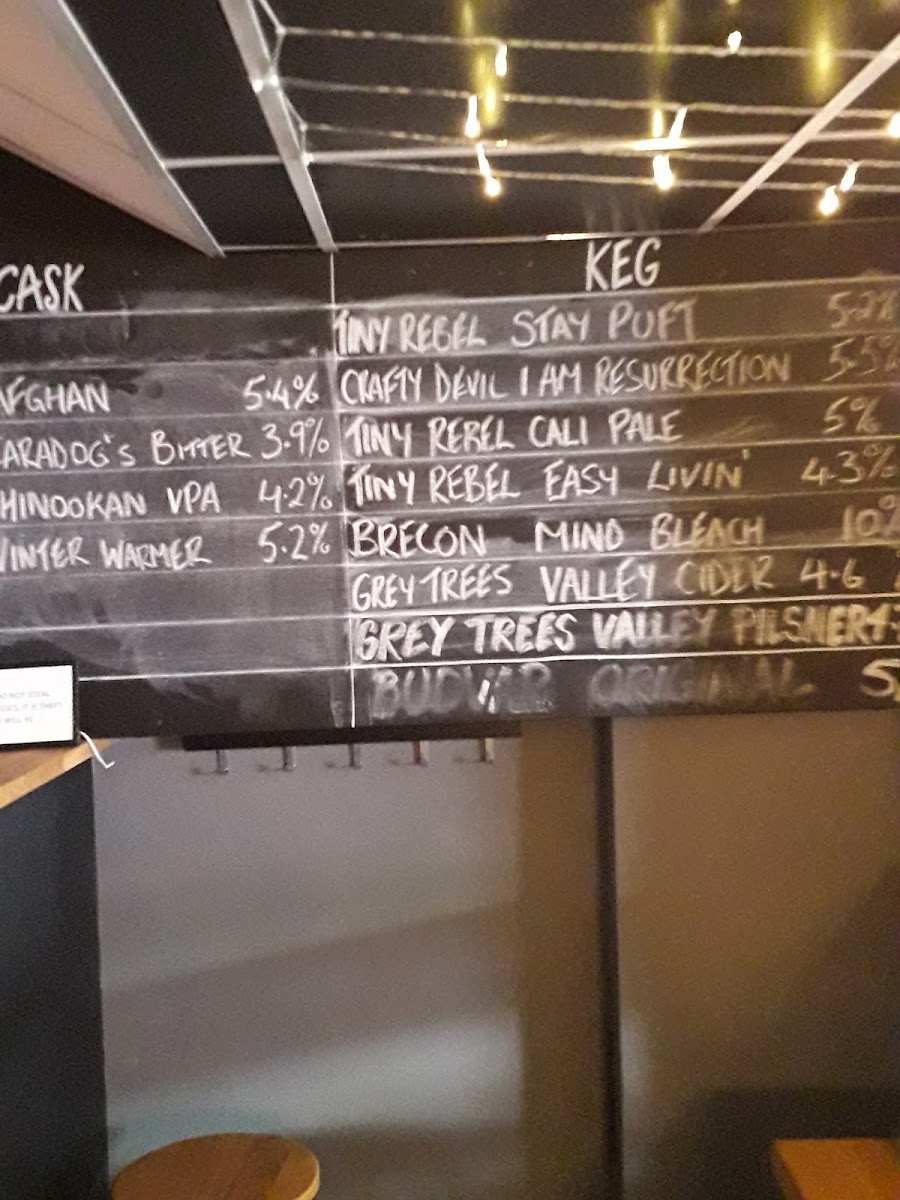 CASK
AFGHAN 5.4%
CARADOG'S BITTER 3.9%
HINOOKAN VPA 4.2%
WINTER WARMER 5.2%
KEG
TINY REBEL STAY PUFT 5.2%
CRAFTY DEVIL I AM RESURRECTION 5.5%
TINY REBEL CALI PALE 5%
TINY REBEL EASY LIVIN' 4.3%
BRECON MIND BLEACH 10%
GREY TREES VALLEY CIDER 4.6 %
GREY TREES VALLEY PILSNER
BUDVAR ORIGINAL 5
DO NOT STEAL
IT IS THEFT